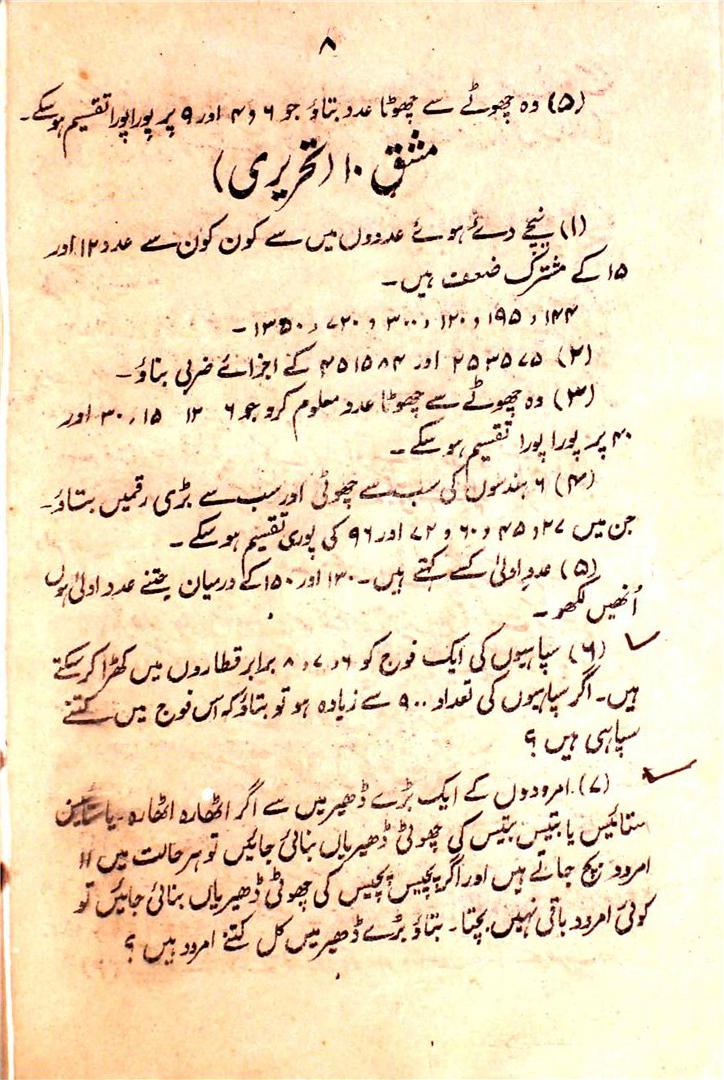 ۸
(۵) وہ چھوٹے سے چھوٹا عدد بتاؤ جو ۶ و ۴ اور ۹ پر پورا پورا تقسیم ہو سکے۔
مشق ۱۰ (تحریری)
(۱) نیچے دئے ہوئے عددوں میں سے کون کون سے عدد ۱۲ اور
۱۵ کے مشترک ضعف ہیں۔
۱۴۴ و ۱۹۵ و ۱۲۰ و ۳۰۰ و ۷۲۰ و ۱۳۵۰ ۔
(۲) ۲۵۳۵۷۵ اور ۴۵۱۵۸۴ کے اجزائے ضربی بتاؤ۔
(۳) وہ چھوٹے سے چھوٹا عدد معلوم کرو جو ۶ ۱۲ ۱۵، ۳۰ اور
۴۰ پر پورا پورا تقسیم ہو سکے۔
(۴) ۶ ہندسوں کی سب سے چھوٹی اور سب سے بڑی رقمیں بتاؤ۔
جن میں ۲۷ و ۴۵ و ۶۰ و ۷۲ اور ۹۶ کی پوری تقسیم ہو سکے۔
(۵) عددِ اولیٰ کسے کہتے ہیں۔ ۱۳۰ اور ۱۵۰ کے درمیان جتنے عدد اولیٰ ہوں
اُنھیں لکھو۔
(۶) سپاہیوں کی ایک فوج کو ۶، ۷، ۸ برابر قطاروں میں کھڑا کر سکتے
ہیں۔ اگر سپاہیوں کی تعداد ۹۰۰ سے زیادہ ہو تو بتاؤ کہ اس فوج میں کتنے
سپاہی ہیں ؟
(۷) امرودوں کے ایک بڑے ڈھیر میں سے اگر اٹھارہ اٹھارہ۔ یا ستائیس
ستائیس یا بتیس بتیس کی چھوٹی ڈھیریاں بنائی جائیں تو ہر حالت میں ۱۱
امرود بچ جاتے ہیں اور اگر پچیس پچیس کی چھوٹی ڈھیریاں بنائی جائیں تو
کوئی امرود باقی نہیں بچتا۔ بتاؤ بڑے ڈھیر میں کل کتنے امرود ہیں ؟